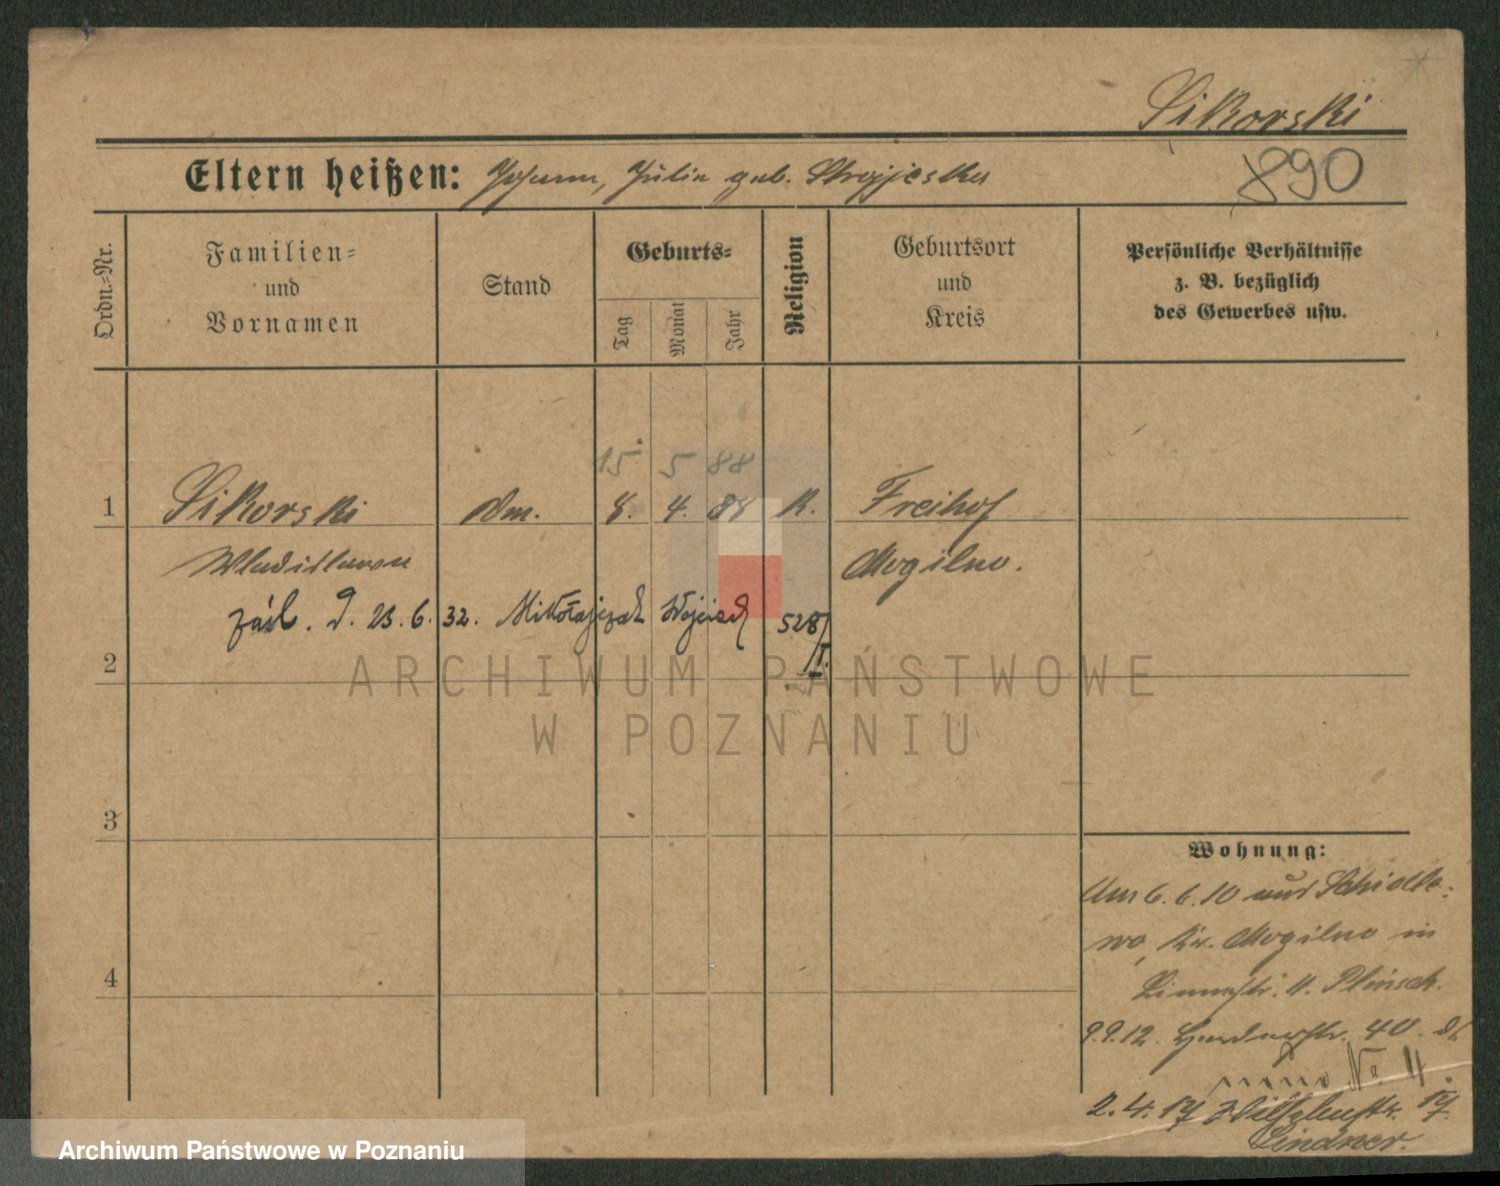 Sikorski
Eltern heißen: Johann, Julia geb.
890
Ordn.-Nr.
Familien- und Vornamen
Stand
Geburts-
Tag
Monat
Jahr
Religion
Geburtsort und Kreis
Persönliche Verhältnisse z. B. bezüglich des Gewerbes usw.
15 5 88
1 Sikorski Dm. 8. 4. 88 K. Freihof
Wladislawa Mogilno.
zaśl. d. 23.6.32. Mikołajczak Wojciech 528/I.
2
ARCHIWUM PAŃSTWOWE
W POZNANIU
3
4
Wohnung:
Am 6.6.10 aus
wo, Kr. Mogilno in
11.
9.9.12. 40.
No 11.
2.4.17
Lindner.
Archiwum Państwowe w Poznaniu